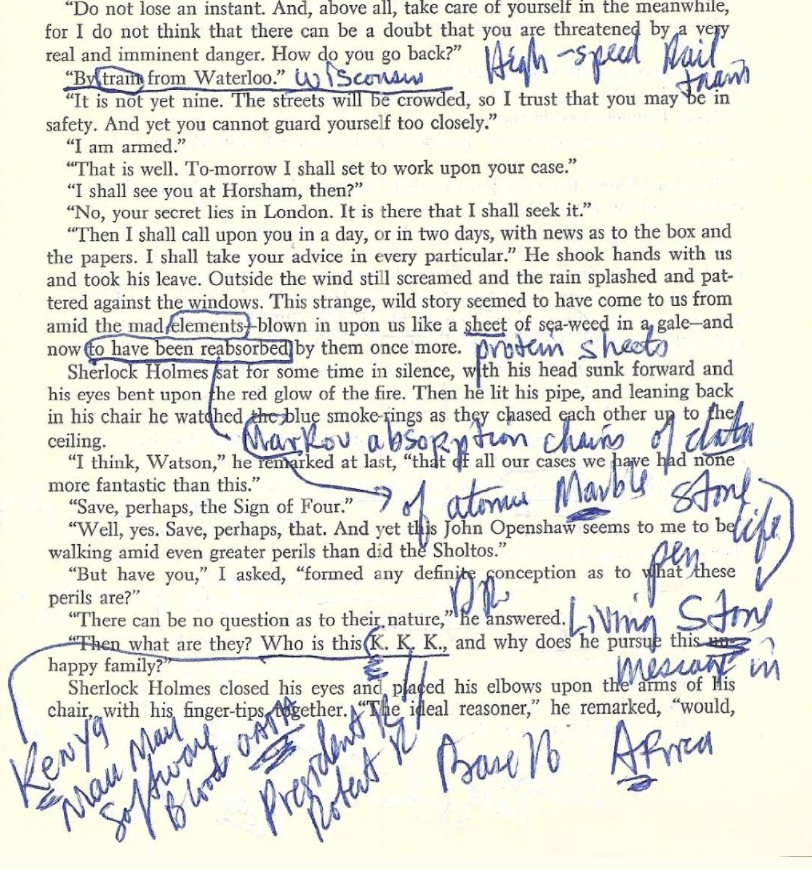 “Do not lose an instant. And, above all, take care of yourself in the meanwhile,
for I do not think that there can be a doubt that you are threatened by a very
real and imminent danger. How do you go back?”
High-speed Rail
train
“By train from Waterloo.” Wisconsin
“It is not yet nine. The streets will be crowded, so I trust that you may be in
safety. And yet you cannot guard yourself too closely.”
“I am armed.”
“That is well. To-morrow I shall set to work upon your case.”
“I shall see you at Horsham, then?”
“No, your secret lies in London. It is there that I shall seek it.”
“Then I shall call upon you in a day, or in two days, with news as to the box and
the papers. I shall take your advice in every particular.” He shook hands with us
and took his leave. Outside the wind still screamed and the rain splashed and pat-
tered against the windows. This strange, wild story seemed to have come to us from
amid the mad elements—blown in upon us like a sheet of sea-weed in a gale—and
now to have been reabsorbed by them once more. protein sheets
Sherlock Holmes sat for some time in silence, with his head sunk forward and
his eyes bent upon the red glow of the fire. Then he lit his pipe, and leaning back
in his chair he watched the blue smoke-rings as they chased each other up to the
ceiling.
Markov absorption chains of data
“I think, Watson,” he remarked at last, “that of all our cases we have had none
more fantastic than this.”
of atomic Marble Stone
“Save, perhaps, the Sign of Four.”
“Well, yes. Save, perhaps, that. And yet this John Openshaw seems to me to be
life
walking amid even greater perils than did the Sholtos.”
pen
“But have you,” I asked, “formed any definite conception as to what these
perils are?”
“There can be no question as to their nature,” he answered.
Living Stone
“Then what are they? Who is this K. K. K., and why does he pursue this un-
happy family?”
in
Sherlock Holmes closed his eyes and placed his elbows upon the arms of his
chair, with his finger-tips together. “The ideal reasoner,” he remarked, “would,
Kenya
Mau Mau
Software
Blood
President K
Robert K
Base
Africa